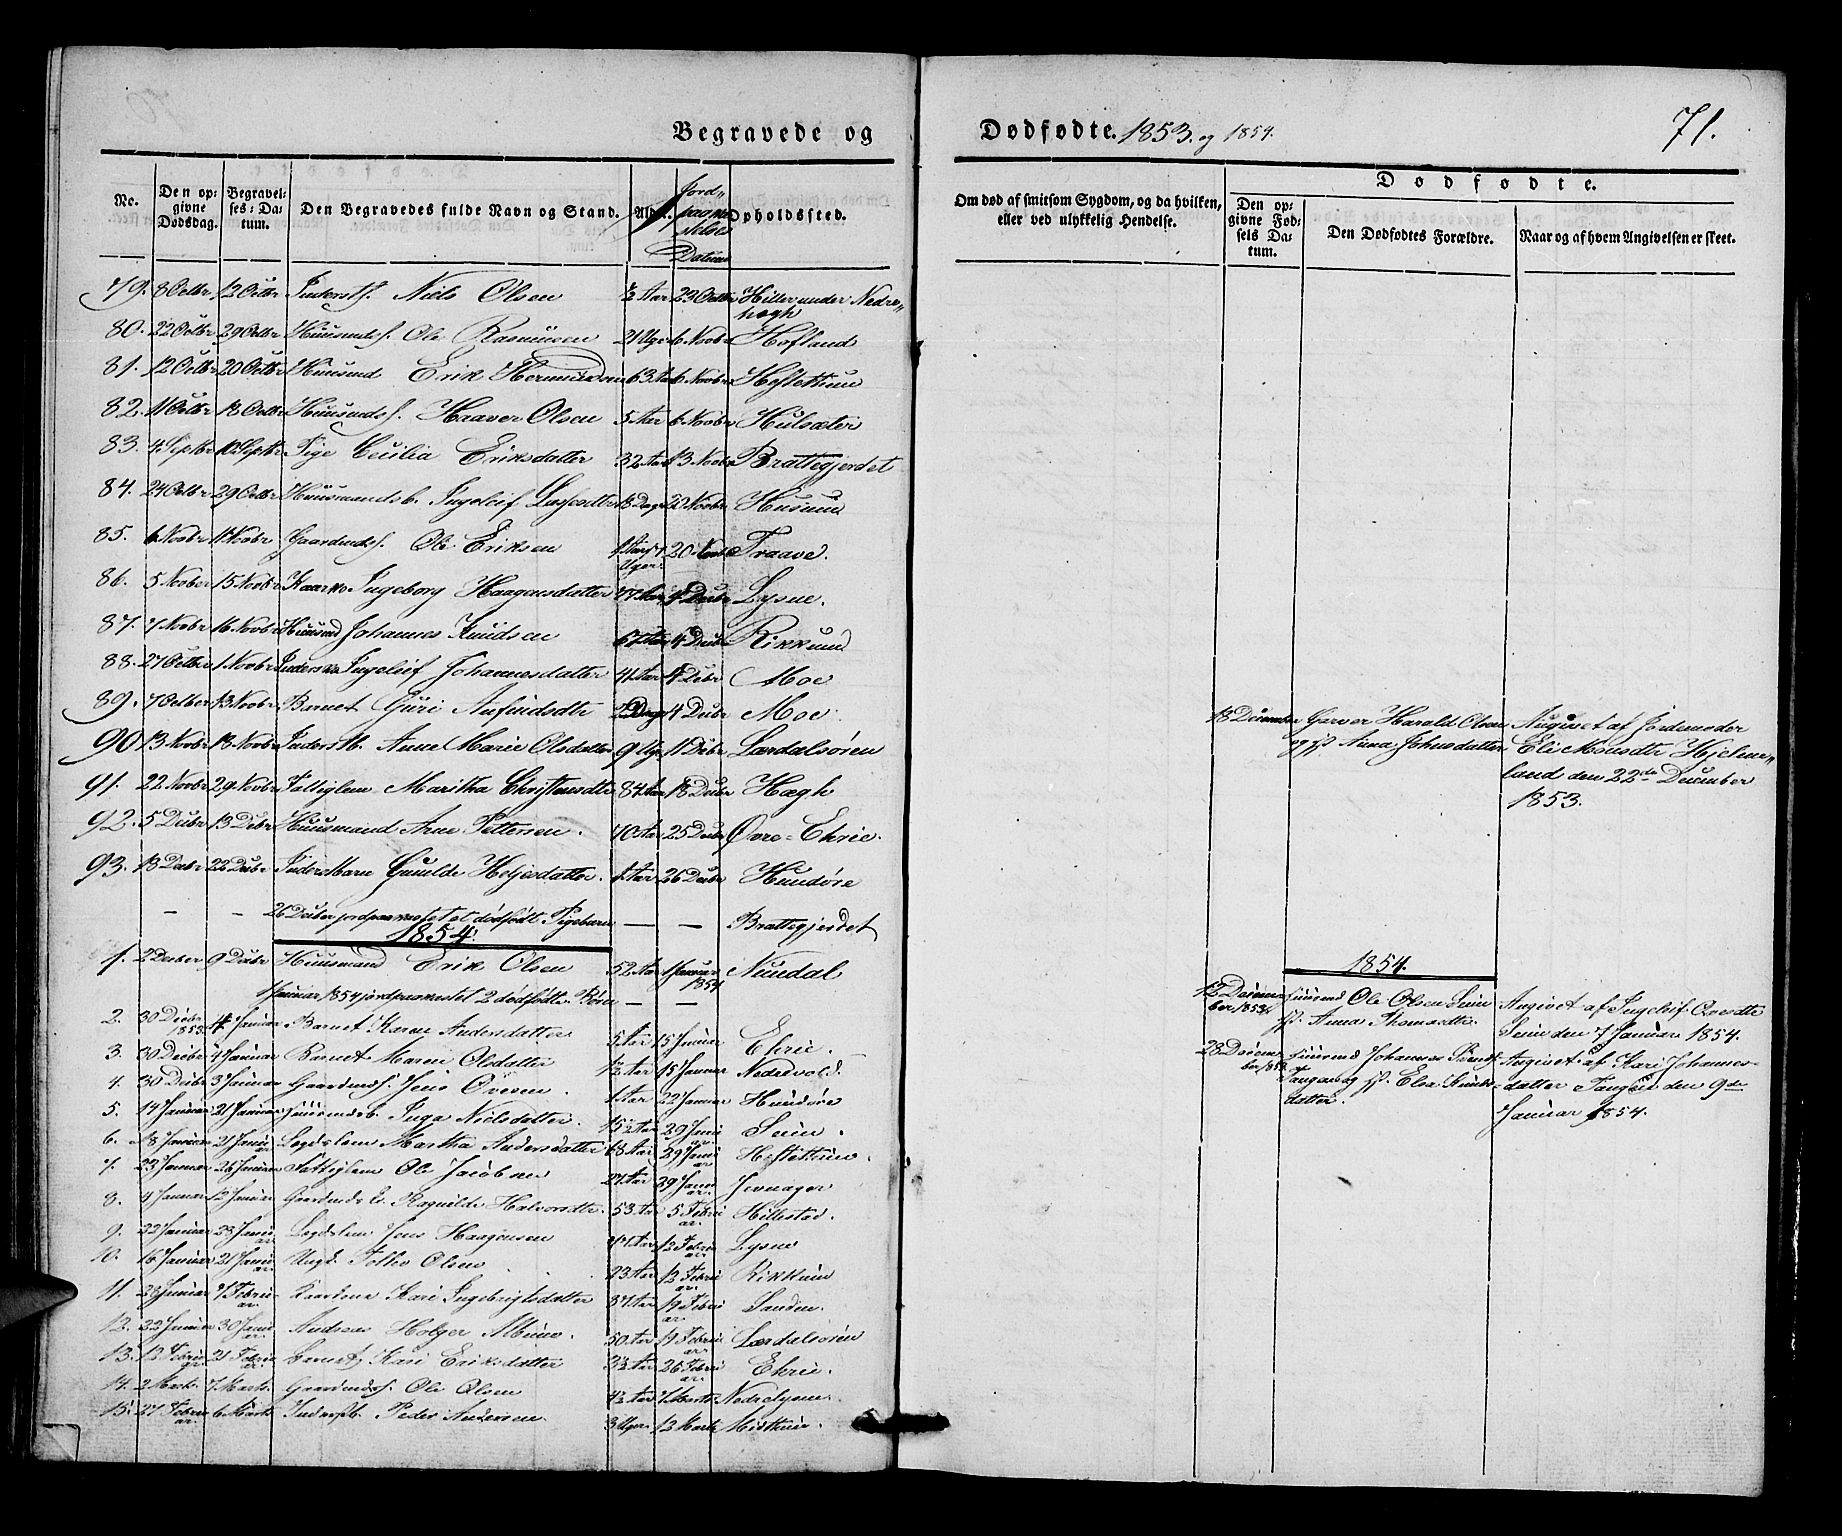 Begravede og
Dødfødte. 1853. og 1854.
71.
No.
Den opgivne Dødsdag.
Begravelses-Datum.
Den Begravedes fulde Navn og Stand.
Jordpaakastelses Datum
Opholdssted.
Om død af smitsom Sygdom, og da hvilken, eller ved ulykkelig Hendelse.
Dødfødte.
Den opgivne Fødsels Datum.
Den Dødfødtes Forældre.
Naar og af hvem Angivelsen er skeet.
79. 8 Octbr 12 Octbr Niels Olsen ½ Aar 23 Octbr Hiller under Nedre-
hægh
80. 22 Octbr 29 Octbr Huusmds. Ole Rasmusen 21 Uger 6 Novbr Hofland
81. 12 Octbr 20 Octbr Huusmd Erik Hermundsen 63 Aar 6 Novbr Heftettun
82. 11 Octbr 18 Octbr Huusmds. Haaver Olsen 5 Aar 6 Novbr Hulsæter
83. 4 Septbr 10 Septbr Pige Cecilia Eriksdatter 32 Aar 13 Novbr Brattegjerdet
84. 24 Octbr 29 Octbr Huusmandsb. Ingeleif 18 Dage Novbr Husum
85. 6 Novbr Novbr Gaardmds. Ole Eriksen 20 Traave.
Uger.
86. 5 Novber 15 Novbr Kaarko. Ingeborg Haagensdatter Decbr Lysne.
87. 7 Novbr 16 Novbr Huusmd Johannes Knudsen 67 Aar 4 Decbr Rikkum
88. 27 Octbr 1 Novbr Ingeleif Johannesdatter 4 Decbr Moe
89. 7 Octber 13 Novbr Barnet Guri Anfindsdtr Dage 4 Decbr Moe.
90 13 Novbr 18 Novbr Anne Marie Olsdatter 9 Uger 11 Decbr Lærdalsøren
91. 22 Novbr 29 Novbr Fattiglem Maritha Christensdtr 84 Aar 18 Decbr Hægh
92. 5 Decbr 13 Decbr Huusmand Arne Pettersen. 40 Aar 25 Decbr Øvre-Ehrie.
93. 13 Decbr 22 Decbr Gunilde Heljesdatter. 1 Aar 26 Decbr Hundøre
— — 26 Decber jordpaakastet et dødfødt Pigebarn — — Brattegjerdet
1854.
1. 2 Decber 9 Decbr Huusmand Erik Olsen 52 Aar 1 Januar Nundal
1854
1 Januar 1854 jordpaakastet 2 dødfødte Børn — —
2. 30 Decbr 4 Januar Barnet Karen Andersdatter 5 Aar 15 Januar Ehrie.
1853.
3. 30 Decbr 4 Januar Barnet Maren Olsdatter ½ Aar 15 Januar Nedrevold.
4. 30 Decbr 3 Januar Gaardmds. Jens Ovesen. 1 Aar 22 Januar Hundøre
5. 14 Januar 21 Januar Huusmdsb. Inga Nielsdatter 1½ Aar 29 Januar Seim.
6. 18 Januar 21 Januar Lægdslem Martha Andersdatter 68 Aar 29 Januar Heftettun.
7. 23 Januar 26 Januar Fattiglem Ole Jacobsen 29 Januar
8. 4 Januar 12 Januar Gaardmds Ragnilde Halvorsdtr. 53 Aar 5 Februar Hillestad.
9. 22 Januar 23 Januar Lægdslem Jens Haagensen 12 Februar Lysne
10. 16 Januar 21 Januar Ungd. Tolleo Olsen 23 Aar 12 Februar Rikkum
11. 28 Januar Februar Kaardkone Kari Ingebrigtsdatter 87 Aar 19 Februar Sanden.
12. 22 Januar 30 Januar Andreas Holger 50 Aar 19 Februar Lærdalsøren
13. 12 Februar 21 Februar Barnet Kari Eriksdatter 3½ Aar 26 Februar Ehrie.
14. 2 Marts 7 Marts Gaardmds. Ole Olsen 4½ Aar Marts Nedrelysne.
15. 27 Februar 6 Marts Peder Andersen. 3 Uger. 12 Marts
18 December Garver Harald Olsen
og H. Anna Johnsdatter.
Angivet af Jordemoder
Eli Monsdtr Hjelme-
land den 22de December
1853.
1854.
December 1853 Huusmd Ole Olsen Seim
og H. Anna Thomasdtr.
Angivet af Ingeleif Ovesdtr
Seim den 7 Januar 1854.
28 December 1853. Huusmd Johannes
Tangen og H. Elsa
datter.
Angivet af Kari Johannes-
datter Tangen den 9de
Januar 1854.